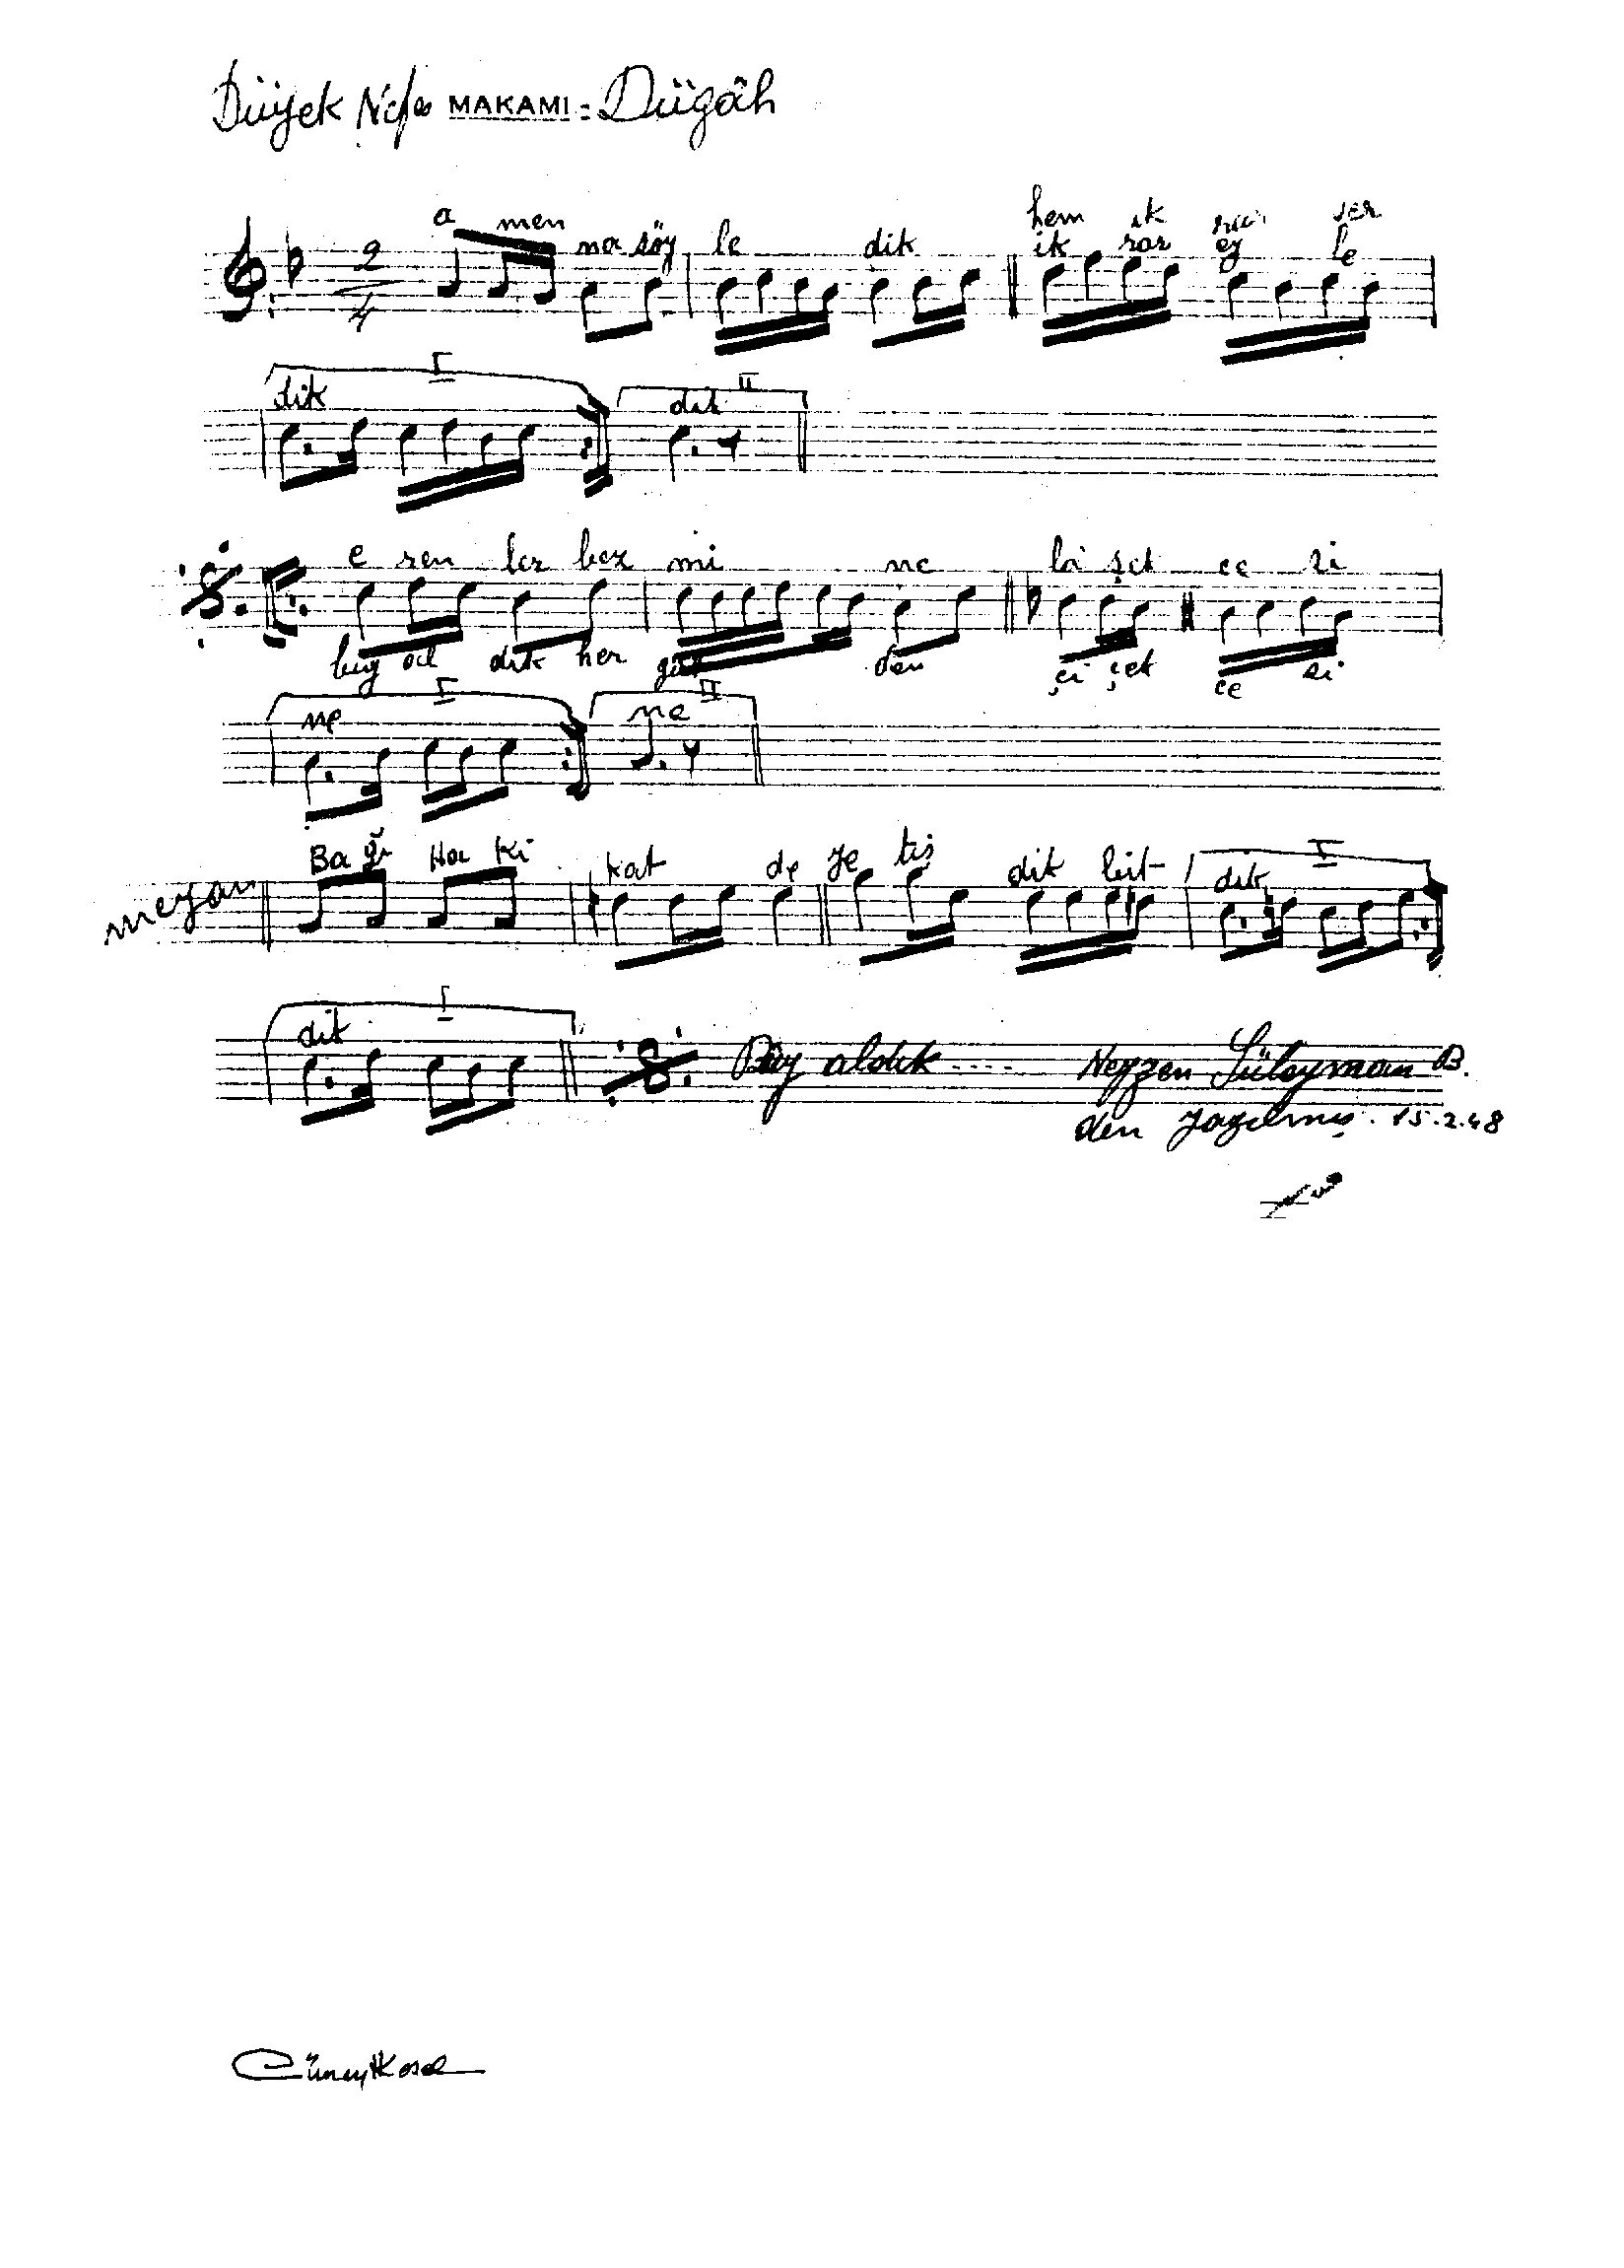 Düyek Nefes MAKAMI = Dügâh
a men na söy le dik hem ik rar ver
ik rar ey le
2
4
I II
dik dik
e ren ler bez mi ne lâ şek ce si
buy al dık her gül den çi çek ce si
I II
ne ne
meyan Ba ğı Ha ki kat de ye tiş dik bit dik I
I
dik Buy aldık .... Neyzen Süleyman B.
den yazılmış. 15.2.48
Cüneyt Kosal